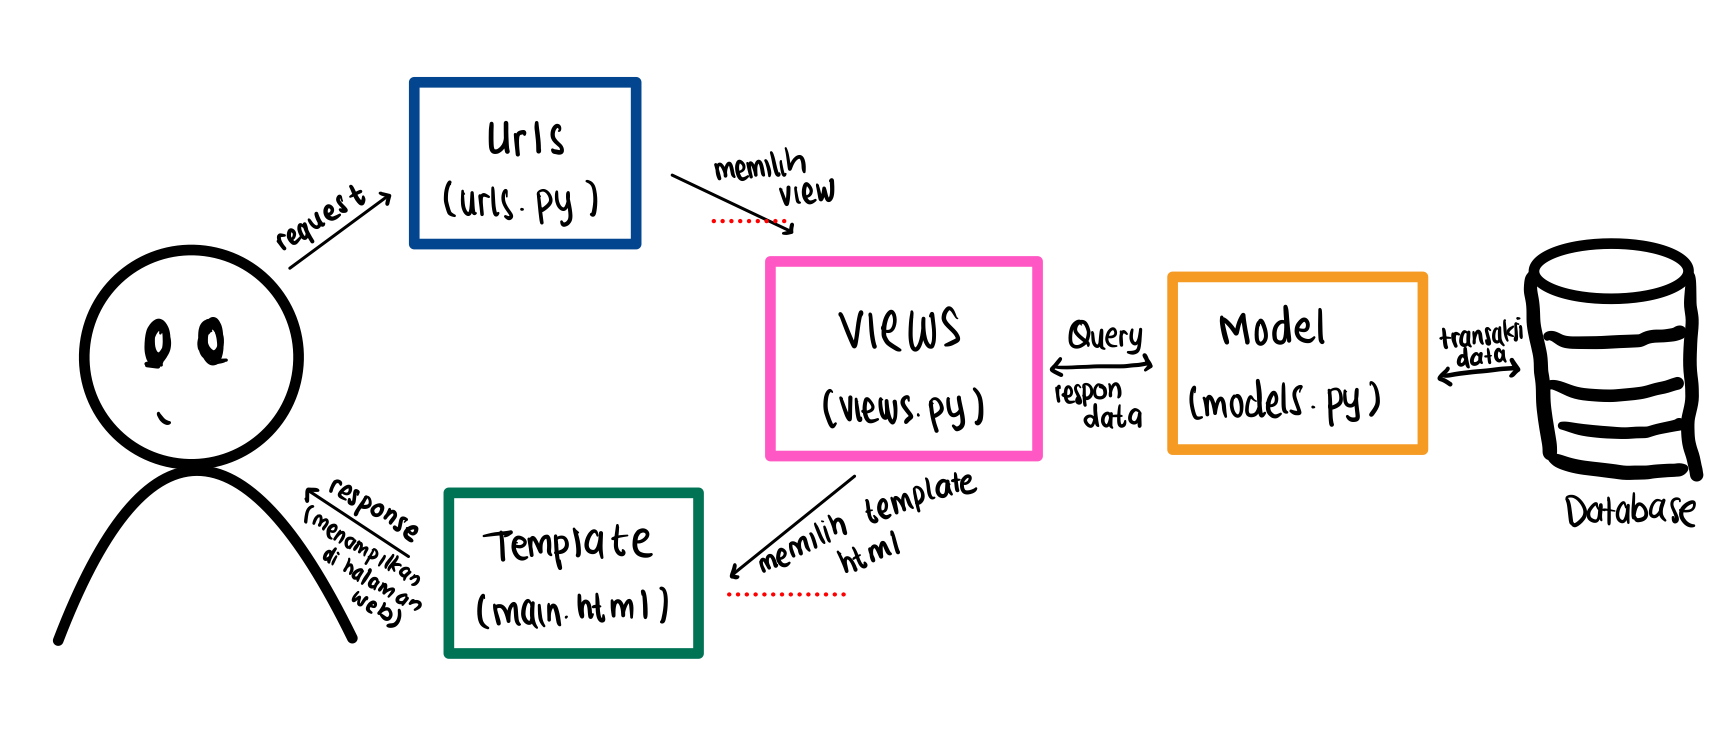 Urls
(urls.py)
request
memilih
view
views
(views.py)
Query
respon
data
Model
(models.py)
transaksi
data
Database
memilih template
html
Template
(main.html)
response
(menampilkan
di halaman
web)